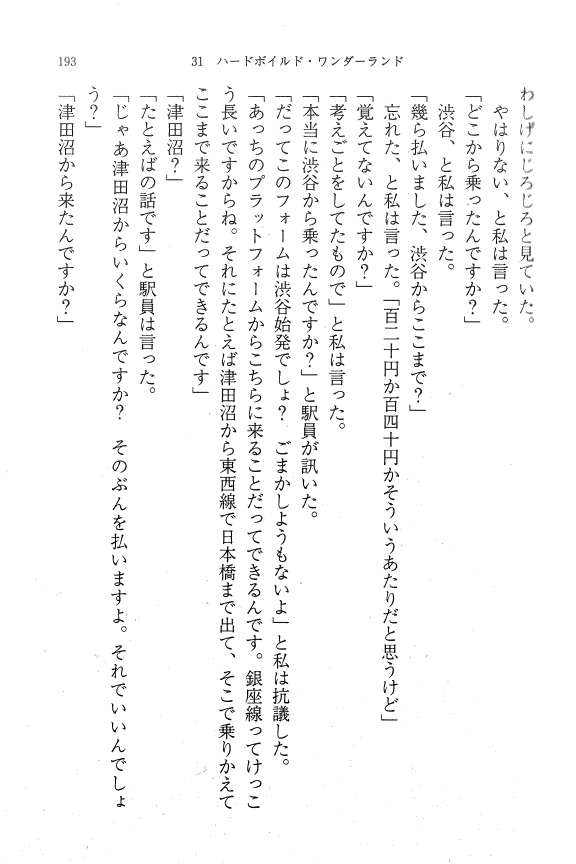 193
31 ハードボイルド・ワンダーランド
わしげにじろじろと見ていた。
やはりない、と私は言った。
「どこから乗ったんですか?」
渋谷、と私は言った。
「幾ら払いました、渋谷からここまで?」
忘れた、と私は言った。「百二十円か百四十円かそういうあたりだと思うけど」
「覚えてないんですか?」
「考えごとをしてたもので」と私は言った。
「本当に渋谷から乗ったんですか?」と駅員が訊いた。
「だってこのフォームは渋谷始発でしょ? ごまかしようもないよ」と私は抗議した。
「あっちのプラットフォームからこちらに来ることだってできるんです。銀座線ってけっこ
う長いですからね。それにたとえば津田沼から東西線で日本橋まで出て、そこで乗りかえて
ここまで来ることだってできるんです」
「津田沼?」
「たとえばの話です」と駅員は言った。
「じゃあ津田沼からいくらなんですか? そのぶんを払いますよ。それでいいんでしょ
う?」
「津田沼から来たんですか?」